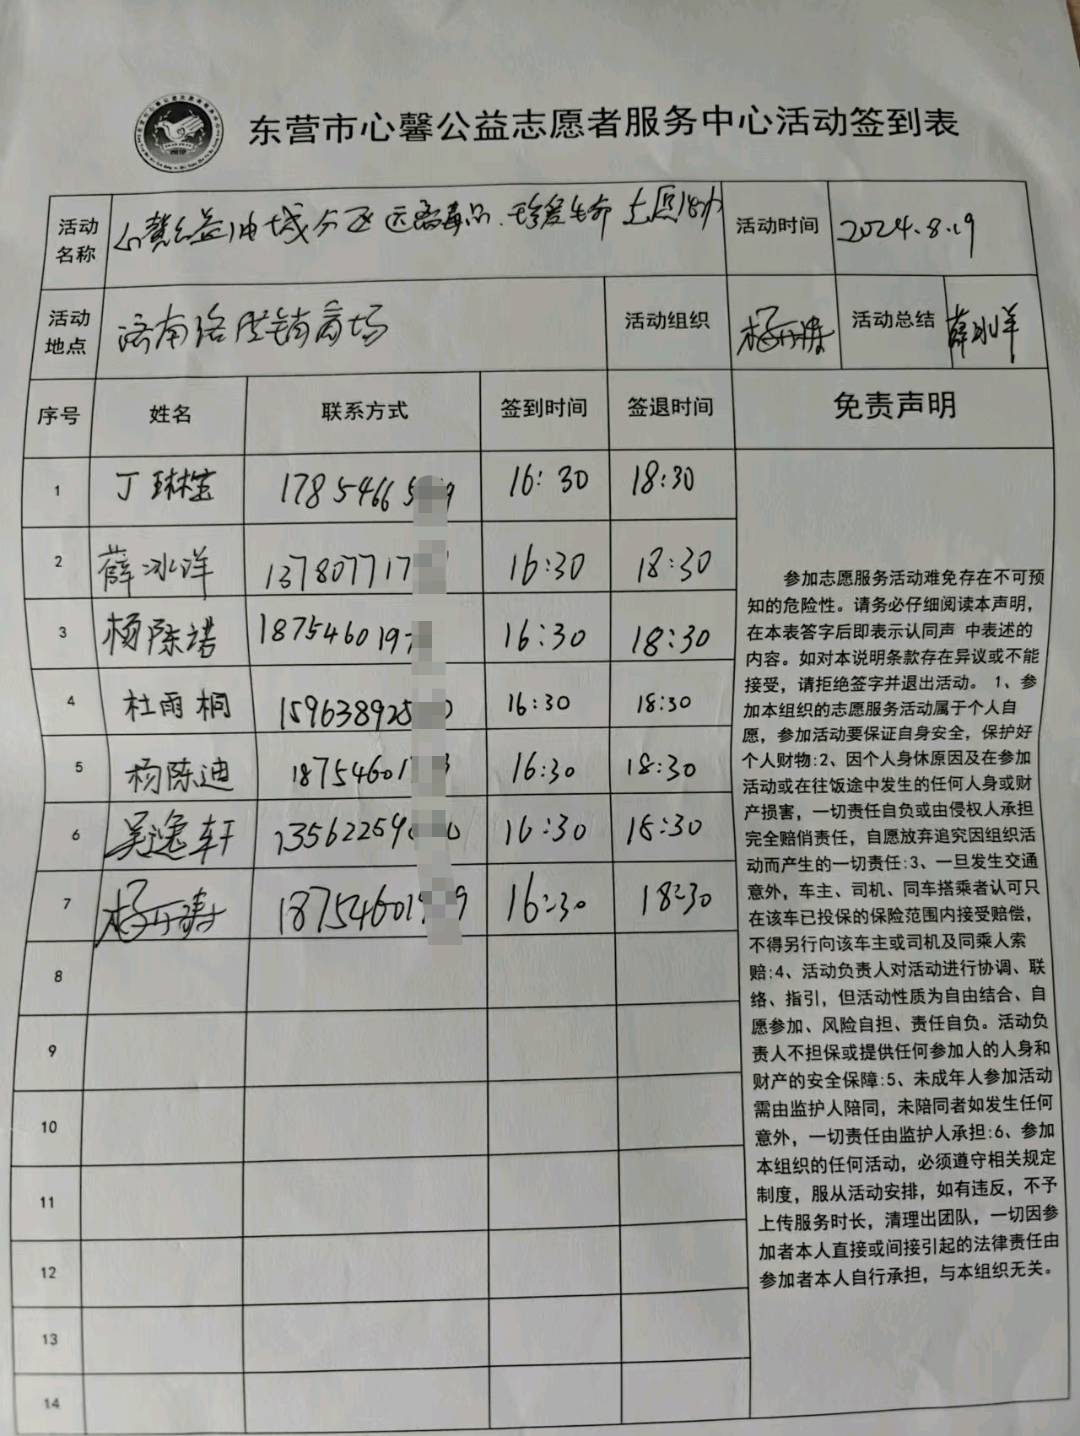 东营市心馨公益志愿者服务中心活动签到表
活动名称 心馨公益油城分区远离毒品.珍爱生命志愿活动 活动时间 2024.8.19
活动地点 济南路 销商场 活动组织 杨 活动总结 薛冰洋
序号 姓名 联系方式 签到时间 签退时间 免责声明
1 丁琳 17854665 9 16:30 18:30
2 薛冰洋 137807717 16:30 18:30
3 杨陈诺 187546019 16:30 18:30
4 杜雨桐 159638925 0 16:30 18:30
5 杨陈迪 18754601 3 16:30 18:30
6 吴逸轩 135622590 0 16:30 18:30
7 杨 18754601 9 16:30 18:30
8
9
10
11
12
13
14
参加志愿服务活动难免存在不可预
知的危险性。请务必仔细阅读本声明，
在本表答字后即表示认同声 中表述的
内容。如对本说明条款存在异议或不能
接受，请拒绝签字并退出活动。 1、参
加本组织的志愿服务活动属于个人自
愿，参加活动要保证自身安全，保护好
个人财物:2、因个人身休原因及在参加
活动或在往饭途中发生的任何人身或财
产损害，一切责任自负或由侵权人承担
完全赔俏责任，自愿放弃追究因组织活
动而产生的一切责任:3、一旦发生交通
意外，车主、司机、同车搭乘者认可只
在该车已投保的保险范围内接受赔偿，
不得另行向该车主或司机及同乘人索
赔:4、活动负责人对活动进行协调、联
络、指引，但活动性质为自由结合、自
愿参加、风险自担、责任自负。活动负
责人不担保或提供任何参加人的人身和
财产的安全保障:5、未成年人参加活动
需由监护人陪同，未陪同者如发生任何
意外，一切责任由监护人承担:6、参加
本组织的任何活动，必须遵守相关规定
制度，服从活动安排，如有违反，不予
上传服务时长，清理出团队，一切因参
加者本人直接或间接引起的法律责任由
参加者本人自行承担，与本组织无关。